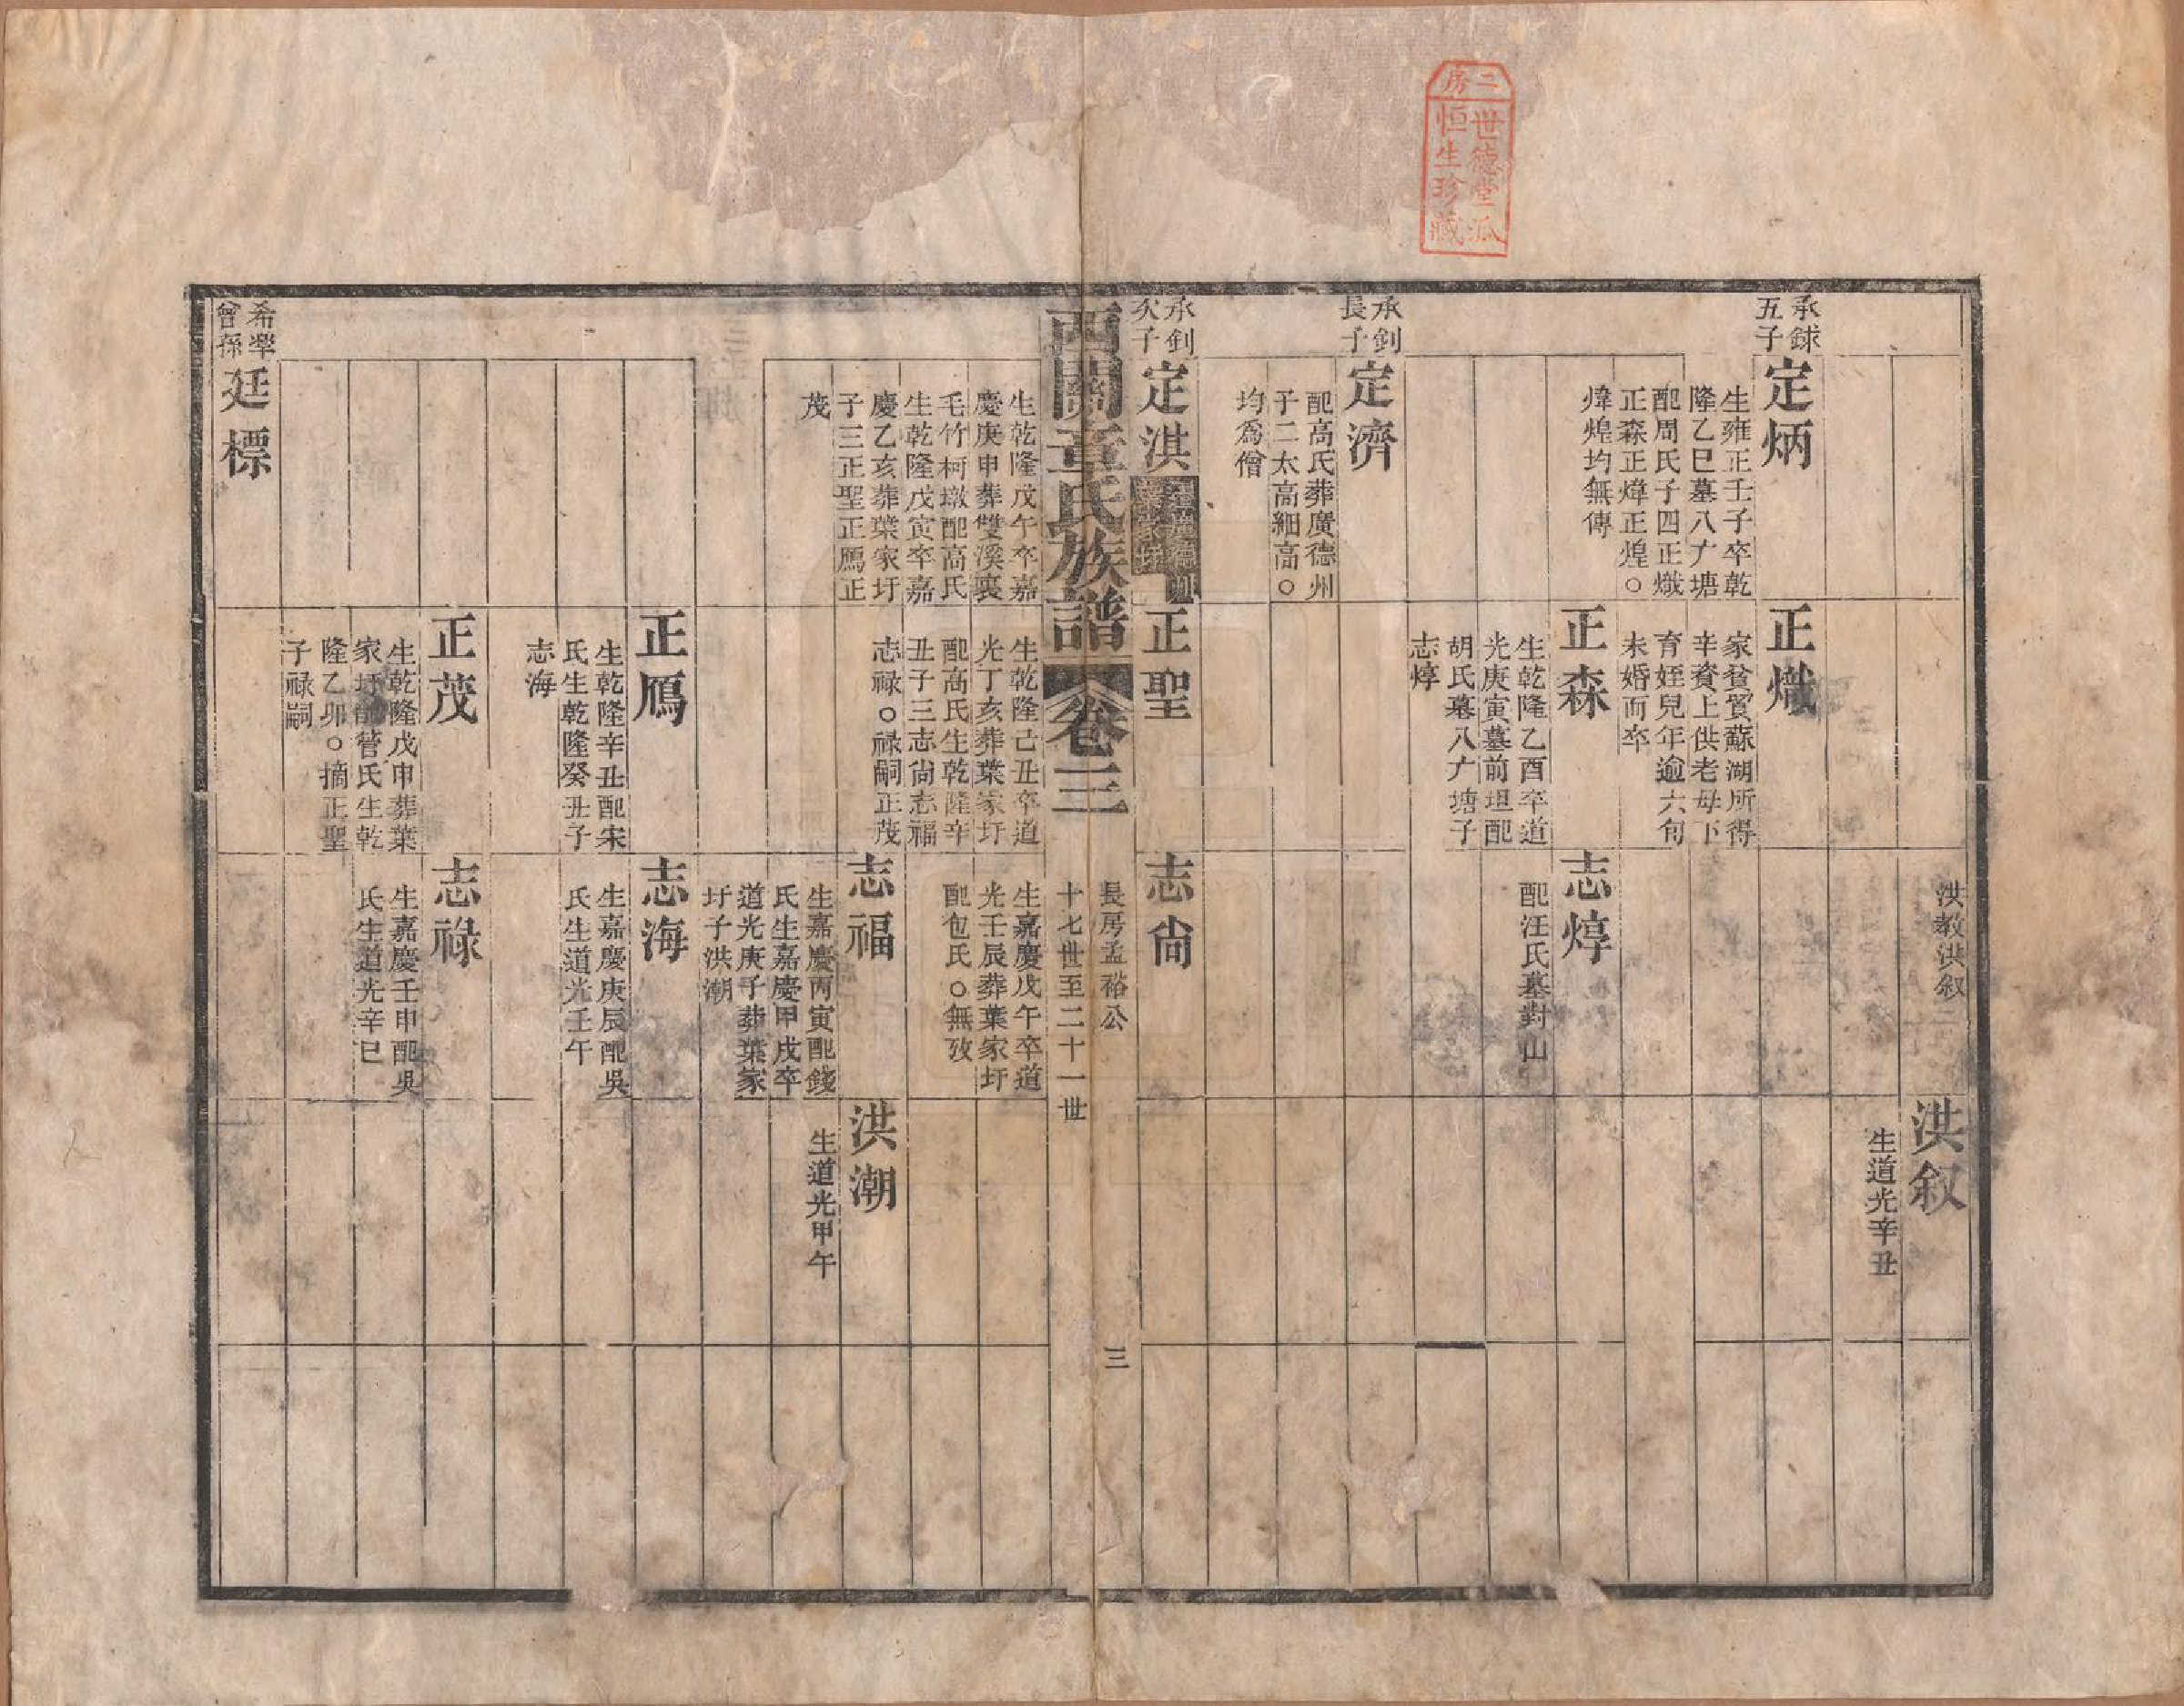 二房
世德堂派
恒生珍藏
洪教洪叙
洪叙
生道光辛丑
承銶
五子
定炳
生雍正壬子卒乾
隆乙巳墓八亩塘
配周氏子四正熾
正森正煒正煌○
煒煌均無傳
正熾
家貧貿蘇湖所得
辛資上供老母下
育姪兒年逾六旬
未婚而卒
正森
生乾隆乙酉卒道
光庚寅墓前坦配
胡氏墓八亩塘子
志焞
志焞
配汪氏墓對山
承釗
長子
定濟
配高氏葬廣德州
子二太高細高○
均為僧
承釗
次子
定淇
正聖
志尙
西關章氏族譜
卷三
長房孟裕公
十七世至二十一世
三
生乾隆戊午卒嘉
慶庚申葬雙溪裏
毛竹柯墩配高氏
生乾隆戊寅卒嘉
慶乙亥葬葉家圩
子三正聖正鴈正
茂
生乾隆己丑卒道
光丁亥葬葉家圩
配高氏生乾隆辛
丑子三志尙志福
志祿○祿嗣正茂
生嘉慶戊午卒道
光壬辰葬葉家圩
配包氏○無攷
志福
生嘉慶丙寅配錢
氏生嘉慶甲戌卒
道光庚子葬葉家
圩子洪潮
洪潮
生道光甲午
正鴈
生乾隆辛丑配宋
氏生乾隆癸丑子
志海
志海
生嘉慶庚辰配吳
氏生道光壬午
正茂
生乾隆戊申葬葉
家圩配管氏生乾
隆乙卯○摘正聖
子祿嗣
志祿
生嘉慶壬申配吳
氏生道光辛巳
希犖
曾孫
廷標